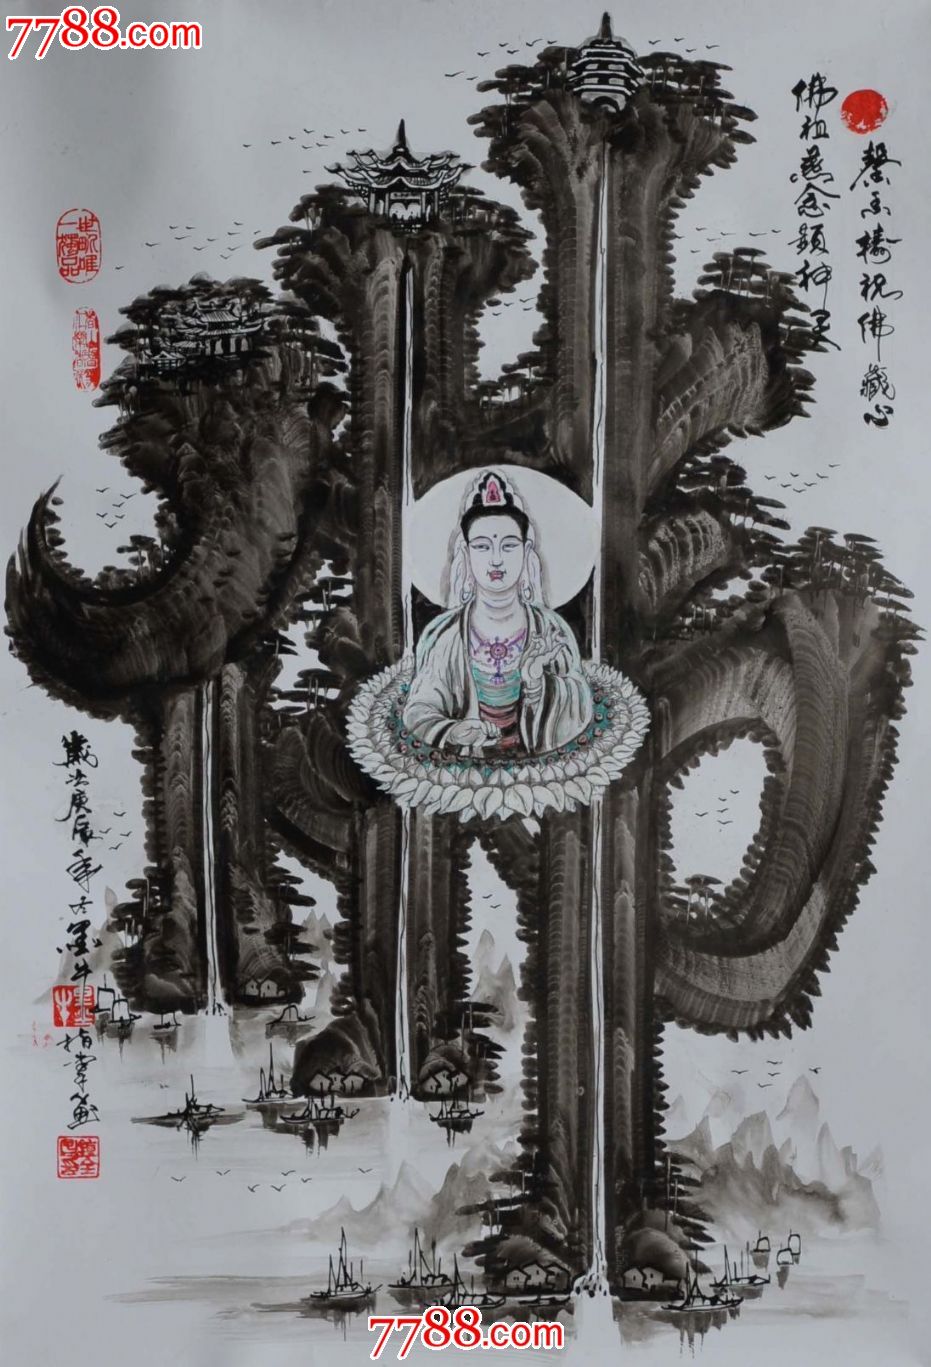 7788.com
馨香祷祝佛藏心
佛祖慈念顯神灵
佛
歲次庚辰年冬墨牛
指掌画
7788.com